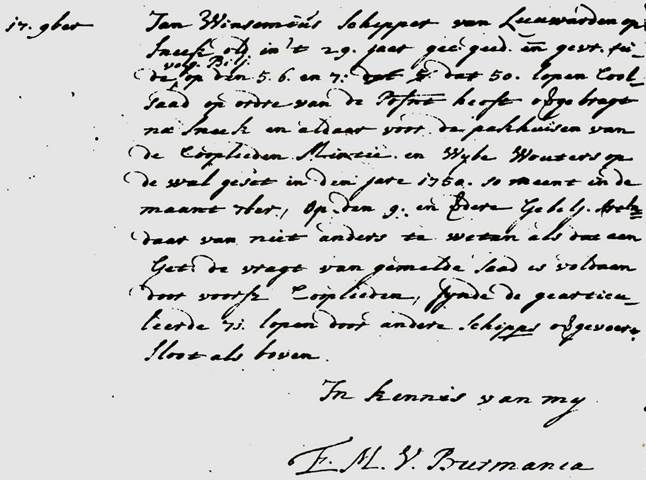 17. 9ber Jan Winsemius Schipper van Leeuwarden op
Sneek old in 't 29. jaer geë: geed. en gevr. tui-
volg. Bilj
de op den 5. 6. en 7. dat 50. lopen Cool-
saad op ordre van de Prfnt heeft opgebragt
na Sneek en aldaar voor de pakhuisen van
de Cooplieden Mintie. en Wybe Wouters op
de wal geset in den jare 1750. so meent in de
maant 7ber, Op den 9. en Gebelj.
daar van niet anders te weten als dat een
Get: de vragt van gemelde saad is voldaen
door voorsz Cooplieden, synde de gearticu-
leerde 75. lopen door andere Schipps opgevoert
sloot als boven.
In kennis van my
E. M. V. Burmania